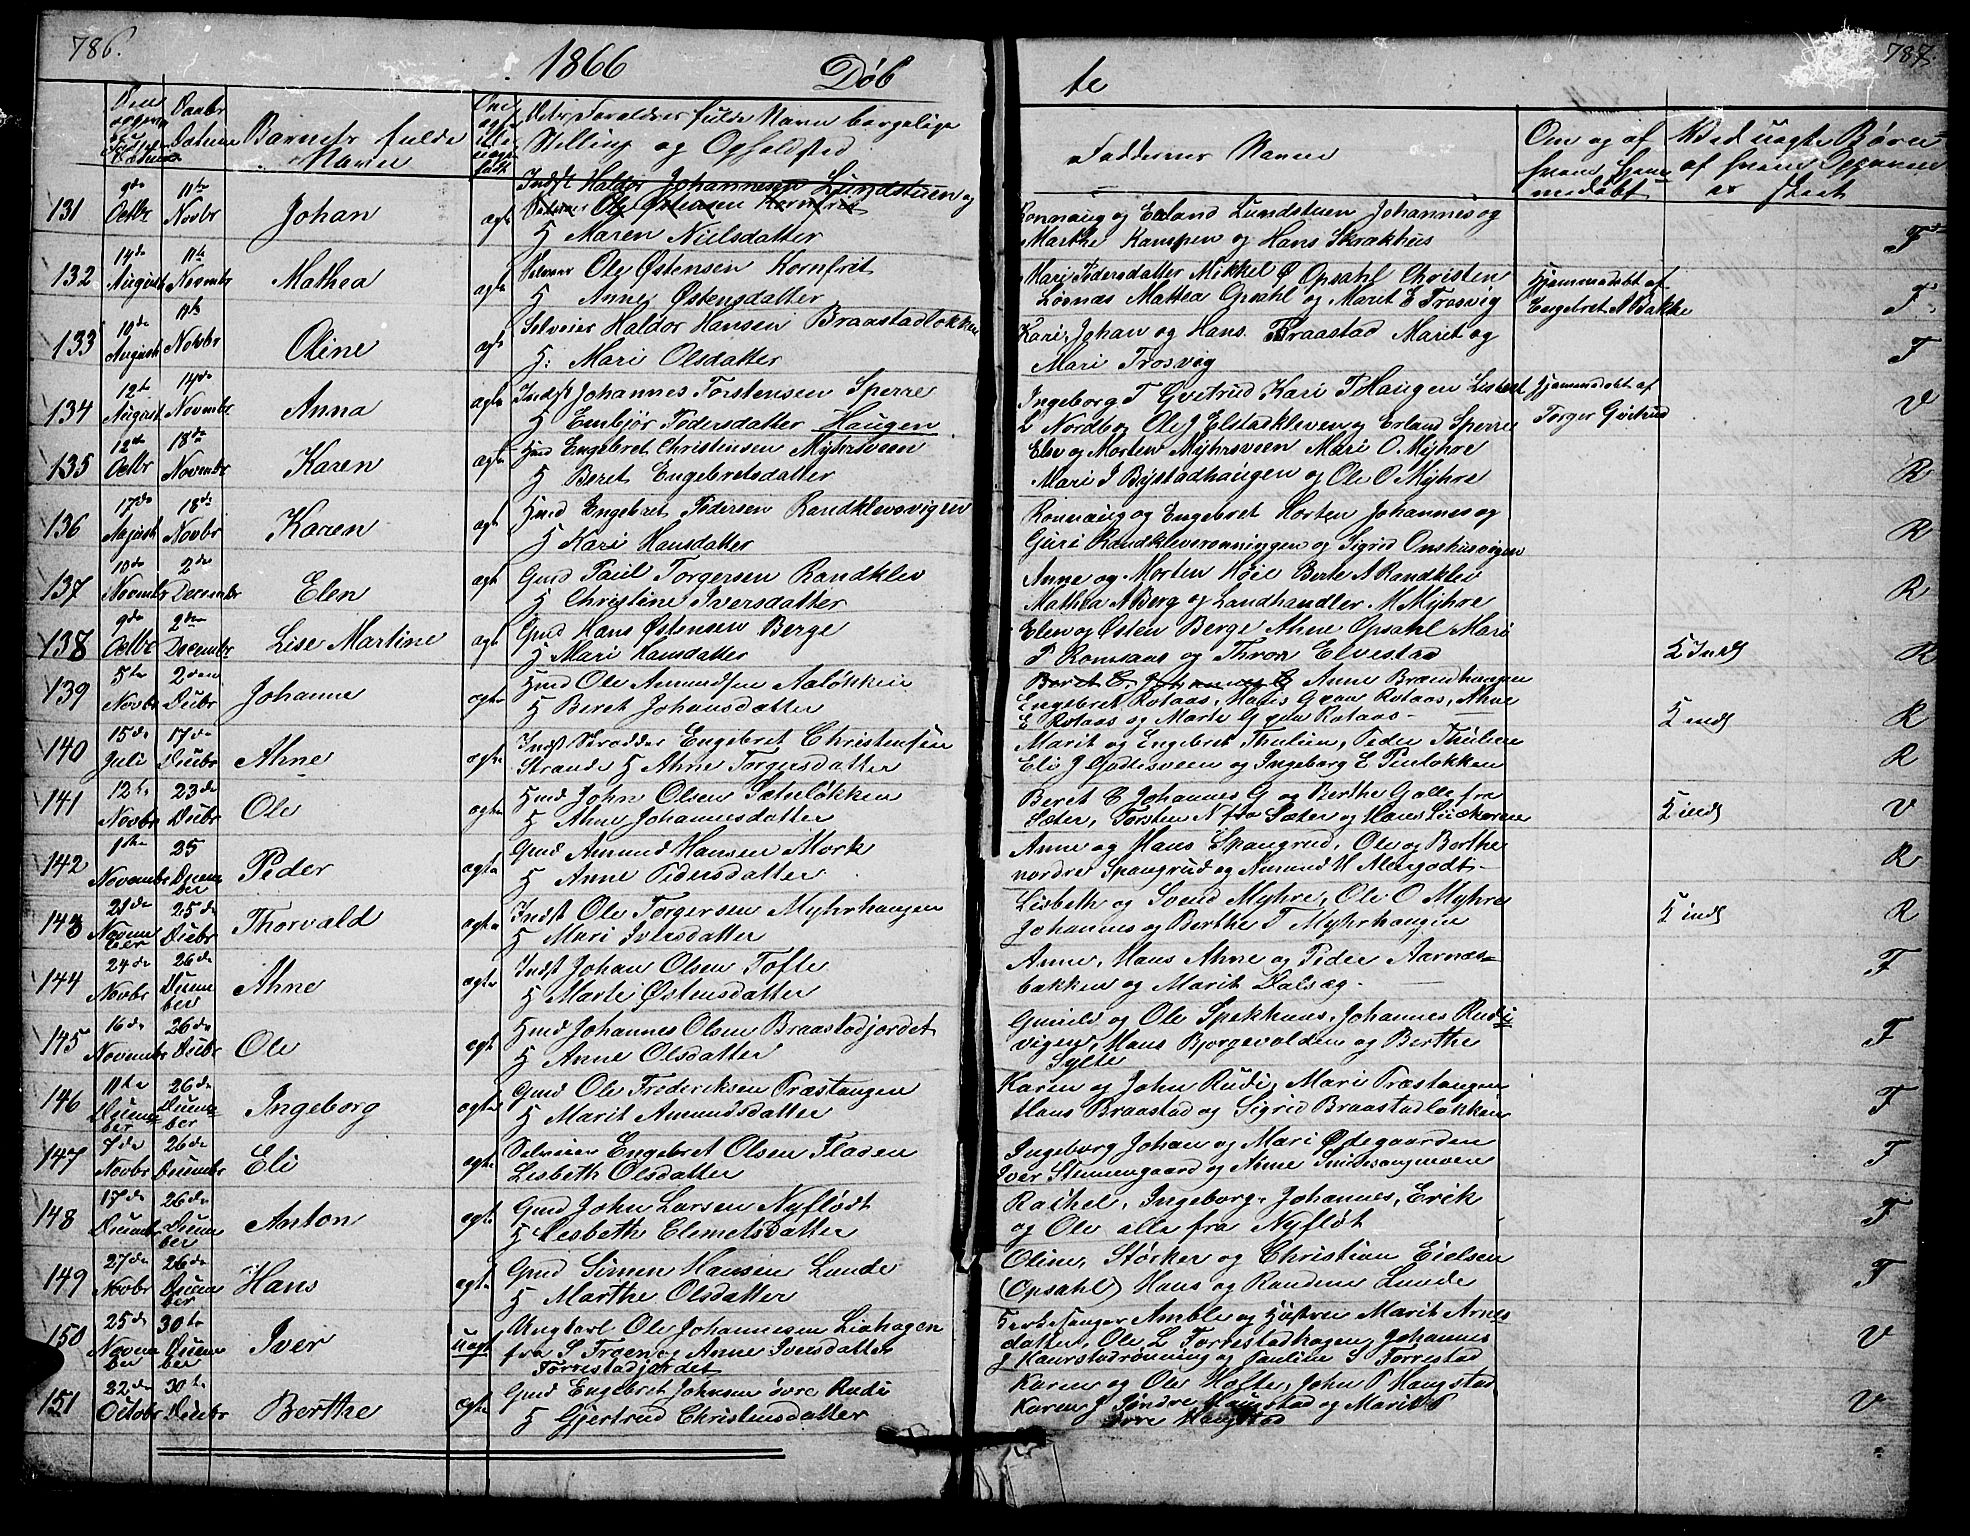 786.
1866
Døb
te
787.
Barnets fulde
Navn
Stilling og Opholdsted
Faddernes Navne
Om og af
131 9de Octbr 11te Novbr Johan ægte Indst Haldor Johannesen Lundstuen og
Selveier Ole Østensen Kornfrit
H Maren Nielsdatter
Ronnaug og Erland Lundstuen Johannes og
Marthe Kampen og Hans Skrækhus F
132 14de August 11te Novembr Mathea ægte Selveier Ole Østensen Kornfrit
H Anne Østensdatter
Mari Pedersdatter Mikkel Ø Opsahl Christen
Løsnæs Mathea Opsahl og Marit E Trosvig
Hjemmedøbt af
Engebret A Bakke F
133 19de August 11te Novbr Oline ægte Selveier Haldor Hansen Braastadløkken
H: Mari Olsdatter
Kari, Johan og Hans Braastad Maret og
Mari Trosvig F
134 12te August 14de Novembr Anna ægte Indst Johannes Torstensen Sperre
H Embjør Pedersdatter Haugen
Ingeborg T Gvetrud Kari T Haugen Lisbet
L Nordbg Ole J Elstadkleven og Erland Sperre
Hjemmedøbt af
Torger Gvetrud V
135 12te Octbr 18de Novembr Karen ægte Hmd Engebret Christensen Myhrsveen
H Beret Engebretsdatter
Else og Morten Myhrsveen Mari O. Myhre
Mari I Bystadhaugen og Ole O Myhre R
136 17de August 18de Novbr Karen ægte Hmd Engebret Pedersen Randklevsvigen
H Kari Hansdatter
Ronnaug og Engebret Horten Johannes og
Guri Randkleverønningen og Sigrid Onshusvigen R
137 10de Novembr 2de Decembr Elen ægte Gmd Paul Torgersen Randklev
H Christine Iversdatter
Anne og Morten Høie Berte A Randklev
Mathea A Berg og Landhandler M Myhre R
138 9de Octbr 2den Decembr Lise Martine ægte Gmd Hans Østensen Berge
H Mari Hansdatter
Elen og Østen Berge Ahne Opsahl Mari
P Romsaas og Thron Elvestad R
139 5te Novbr 2den Decbr Johanne ægte Hmd Ole Amundsen Aaløkken
H Beret Johansdatter
Anne Brændhaugen
Engebret Rotaas, Hans G gaa Rotaas, Ahne
E Rotaas og Marte G gaa Rotaas - R
140 15de Juli 17de Decbr Ahne ægte Indst Skrædder Engebret Christensen
Strande H Ahne Torgersdatter
Marit og Engebret Thulien, Peder Thulien
Eli J Godlisveen og Ingeborg E Pinløkken R
141 12te Novbr 23de Decbr Ole ægte Hmd John Olsen Sæterløkken
H Ahne Johannesdatter
Beret E Johannes G og Berthe G alle fra
Sæter, Torsten N fra Sæter V
142 1ste Novembr 25 December Peder ægte Gmd Amund Hansen Mork
H Anne Pedersdatter
Anne og Hans Spangrud, Ole og Berthe
nordre Spangrud og Amund H Margodt - R
143 21de November 25de Decbr Thorvald ægte Indst Ole Torgersen Myhrhaugen
H Mari Iversdatter
Lisbeth og Svend Myhre, Ole O Myhre
Johannes og Berthe T Myhrhaugen R
144 24de Novbr 26de December Ahne ægte Indst Johan Olsen Tofte
H Marte Østensdatter
Anne, Hans Ahne og Peder Aarnæs-
bakken og Marit Dalseg - F
145 16de Novembr 26de Decbr Ole ægte Hmd Johannes Olsen Braastadjordet
H Anne Olsdatter
Gunild og Ole Spekhuus, Johannes Rudi
vigen, Hans Bjorgevolden og Berthe
Sylte F
146 11te December 26de December Ingeborg ægte Gmd Ole Frederiksen Træstangen
H Marit Amundsdatter
Karen og John Rudi, Mari Træstangen
Hans Braastad og Sigrid Braastadløkken F
147 7de Novbr 26de Decembr Eli ægte Selveier Engebret Olsen Fladen
Lisbeth Olsdatter
Ingeborg Johan og Mari Ødegaarden
Iver Stenengaard og Anne F
148 17de Decembr 26de December Anton ægte Gmd John Larsen Nyflødt
H Lisbeth Clemetsdatter
Rachel, Ingeborg, Johannes, Erik
og Ole alle fra Nyfløt F
149 27de Novbr 26de December Hans ægte Gmd Simen Hansen Lunde
H Marthe Olsdatter
Oline, Størker og Christian Eielsen
(Opsahl) Hans og Randine Lunde F
150 25de November 30te December Iver uægte Ungkarl Ole Johannesen Liehagen
fra S Froen og Anne Iversdatter
Torrestadjordet
Kirkesanger Amble og Hustru Marit Arnes
datter, Ole L Torrestadhagen, Johannes
J Kaurstadrønning og Pauline S Torrestad V
151 22de Octobr 30te Decbr Berthe ægte Gmd Engebret Johnsen øvre Rudi
H Gjertrud Christensdatter
Karen og Ole Holte, John P Haugstad
Karen J Søndre Haugstad og Marit P
øvre Haugstad V